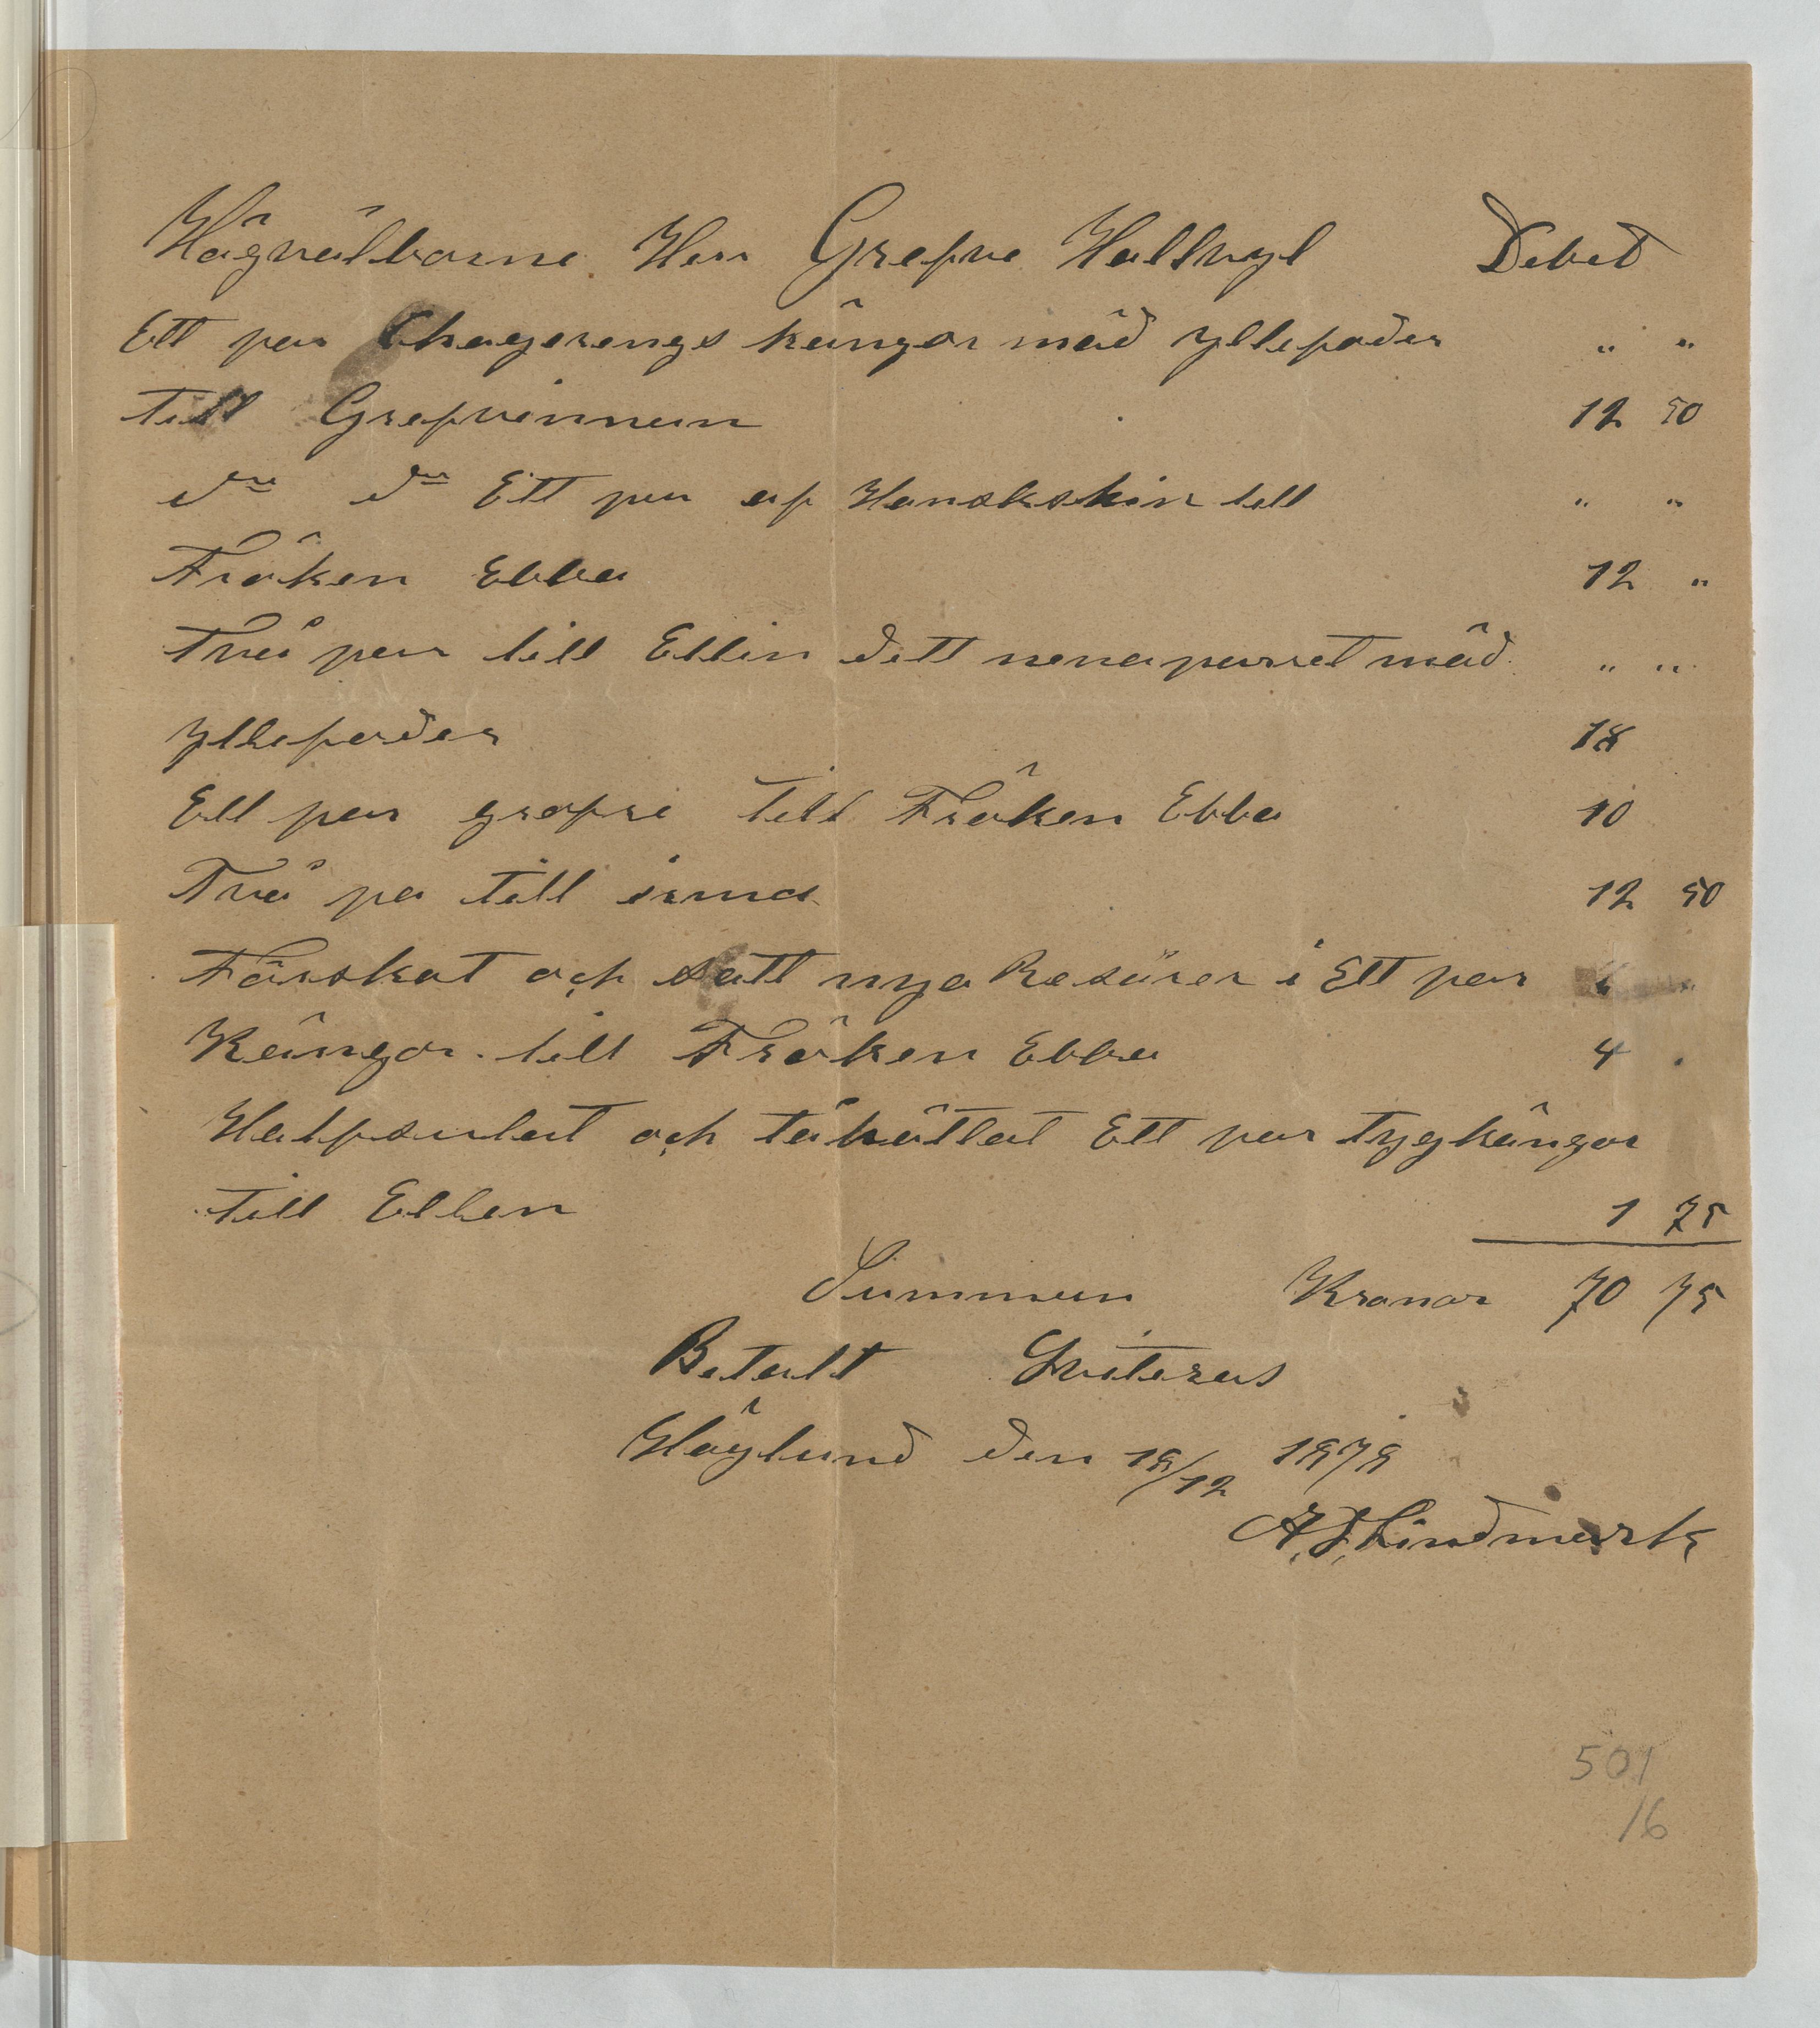 Högvälborne Herr Grefve Hallvyl Debet
Ett par Chagerengs kängor mäd yllefoder " "
till Grefvinnan 12 50
do do Ett par af Handskskin till " "
Fröken Ebba 12 "
Två par till Ellin dett nena parret mäd " "
yllefoder 18
Ett par grofre till Fröken Ebba 10
Två pa till irma 12 50
Förskot och satt nya Resårer i Ett par " "
Kängor till Fröken Ebba 4 "
Halfsulat och tåhättat Ett par tygkängor
till Ellen 1 75
Summan Kronor 70 75
Betalt Qviteras
Höglund den 19/12 1879
A. J. Lindmark
501
16